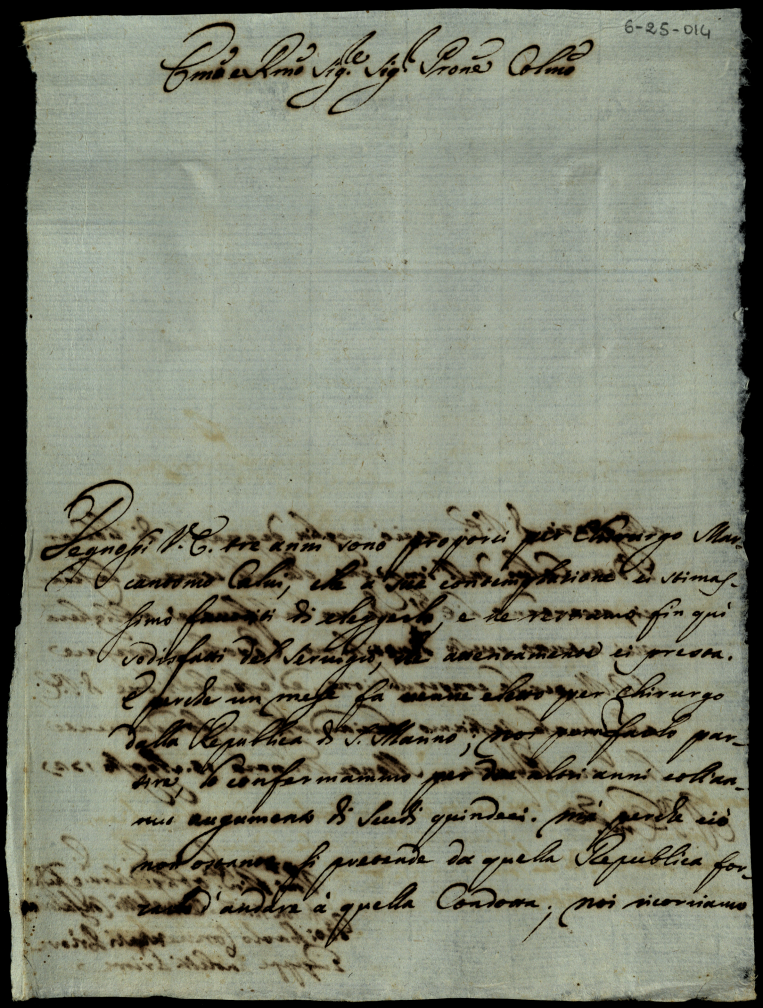 6-25-014
Emo e Rmo Sig.re Sig.r Prone Colmo
Degnossi V. E. tre anni sono proporci per Chirurgo Mar-
cantonio Calui, che à sua contemplazione ci stimas-
simo fauoriti di eleggerlo, e ne restiamo fin quì
sodisfatti del seruigio, che attentamente ci presta.
E perche un mese fà uenne eletto per Chirurgo
dalla Republica di S. Marino, noi per non farlo par-
tire, lo confermammo per due altri anni coll'an-
nuo augumento di Scudi quindeci. mà perche ciò
non ostante si pretende da quella Republica for-
zarlo d'andare à quella Condotta, noi ricorriamo